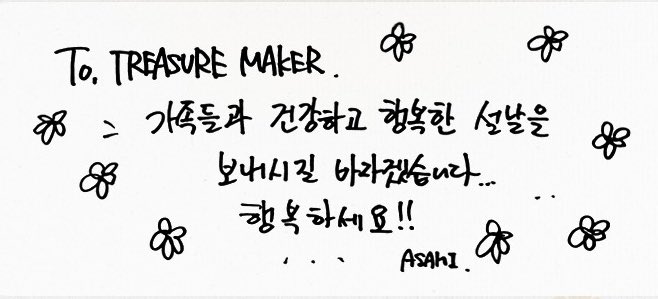 To. TREASURE MAKER.
가족들과 건강하고 행복한 설날을
보내시길 바라겠습니다...
행복하세요!!
ASAHI.